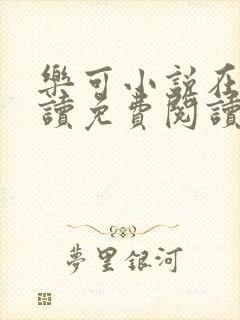 樂可小說在
讀免費閱讀
夢里銀河